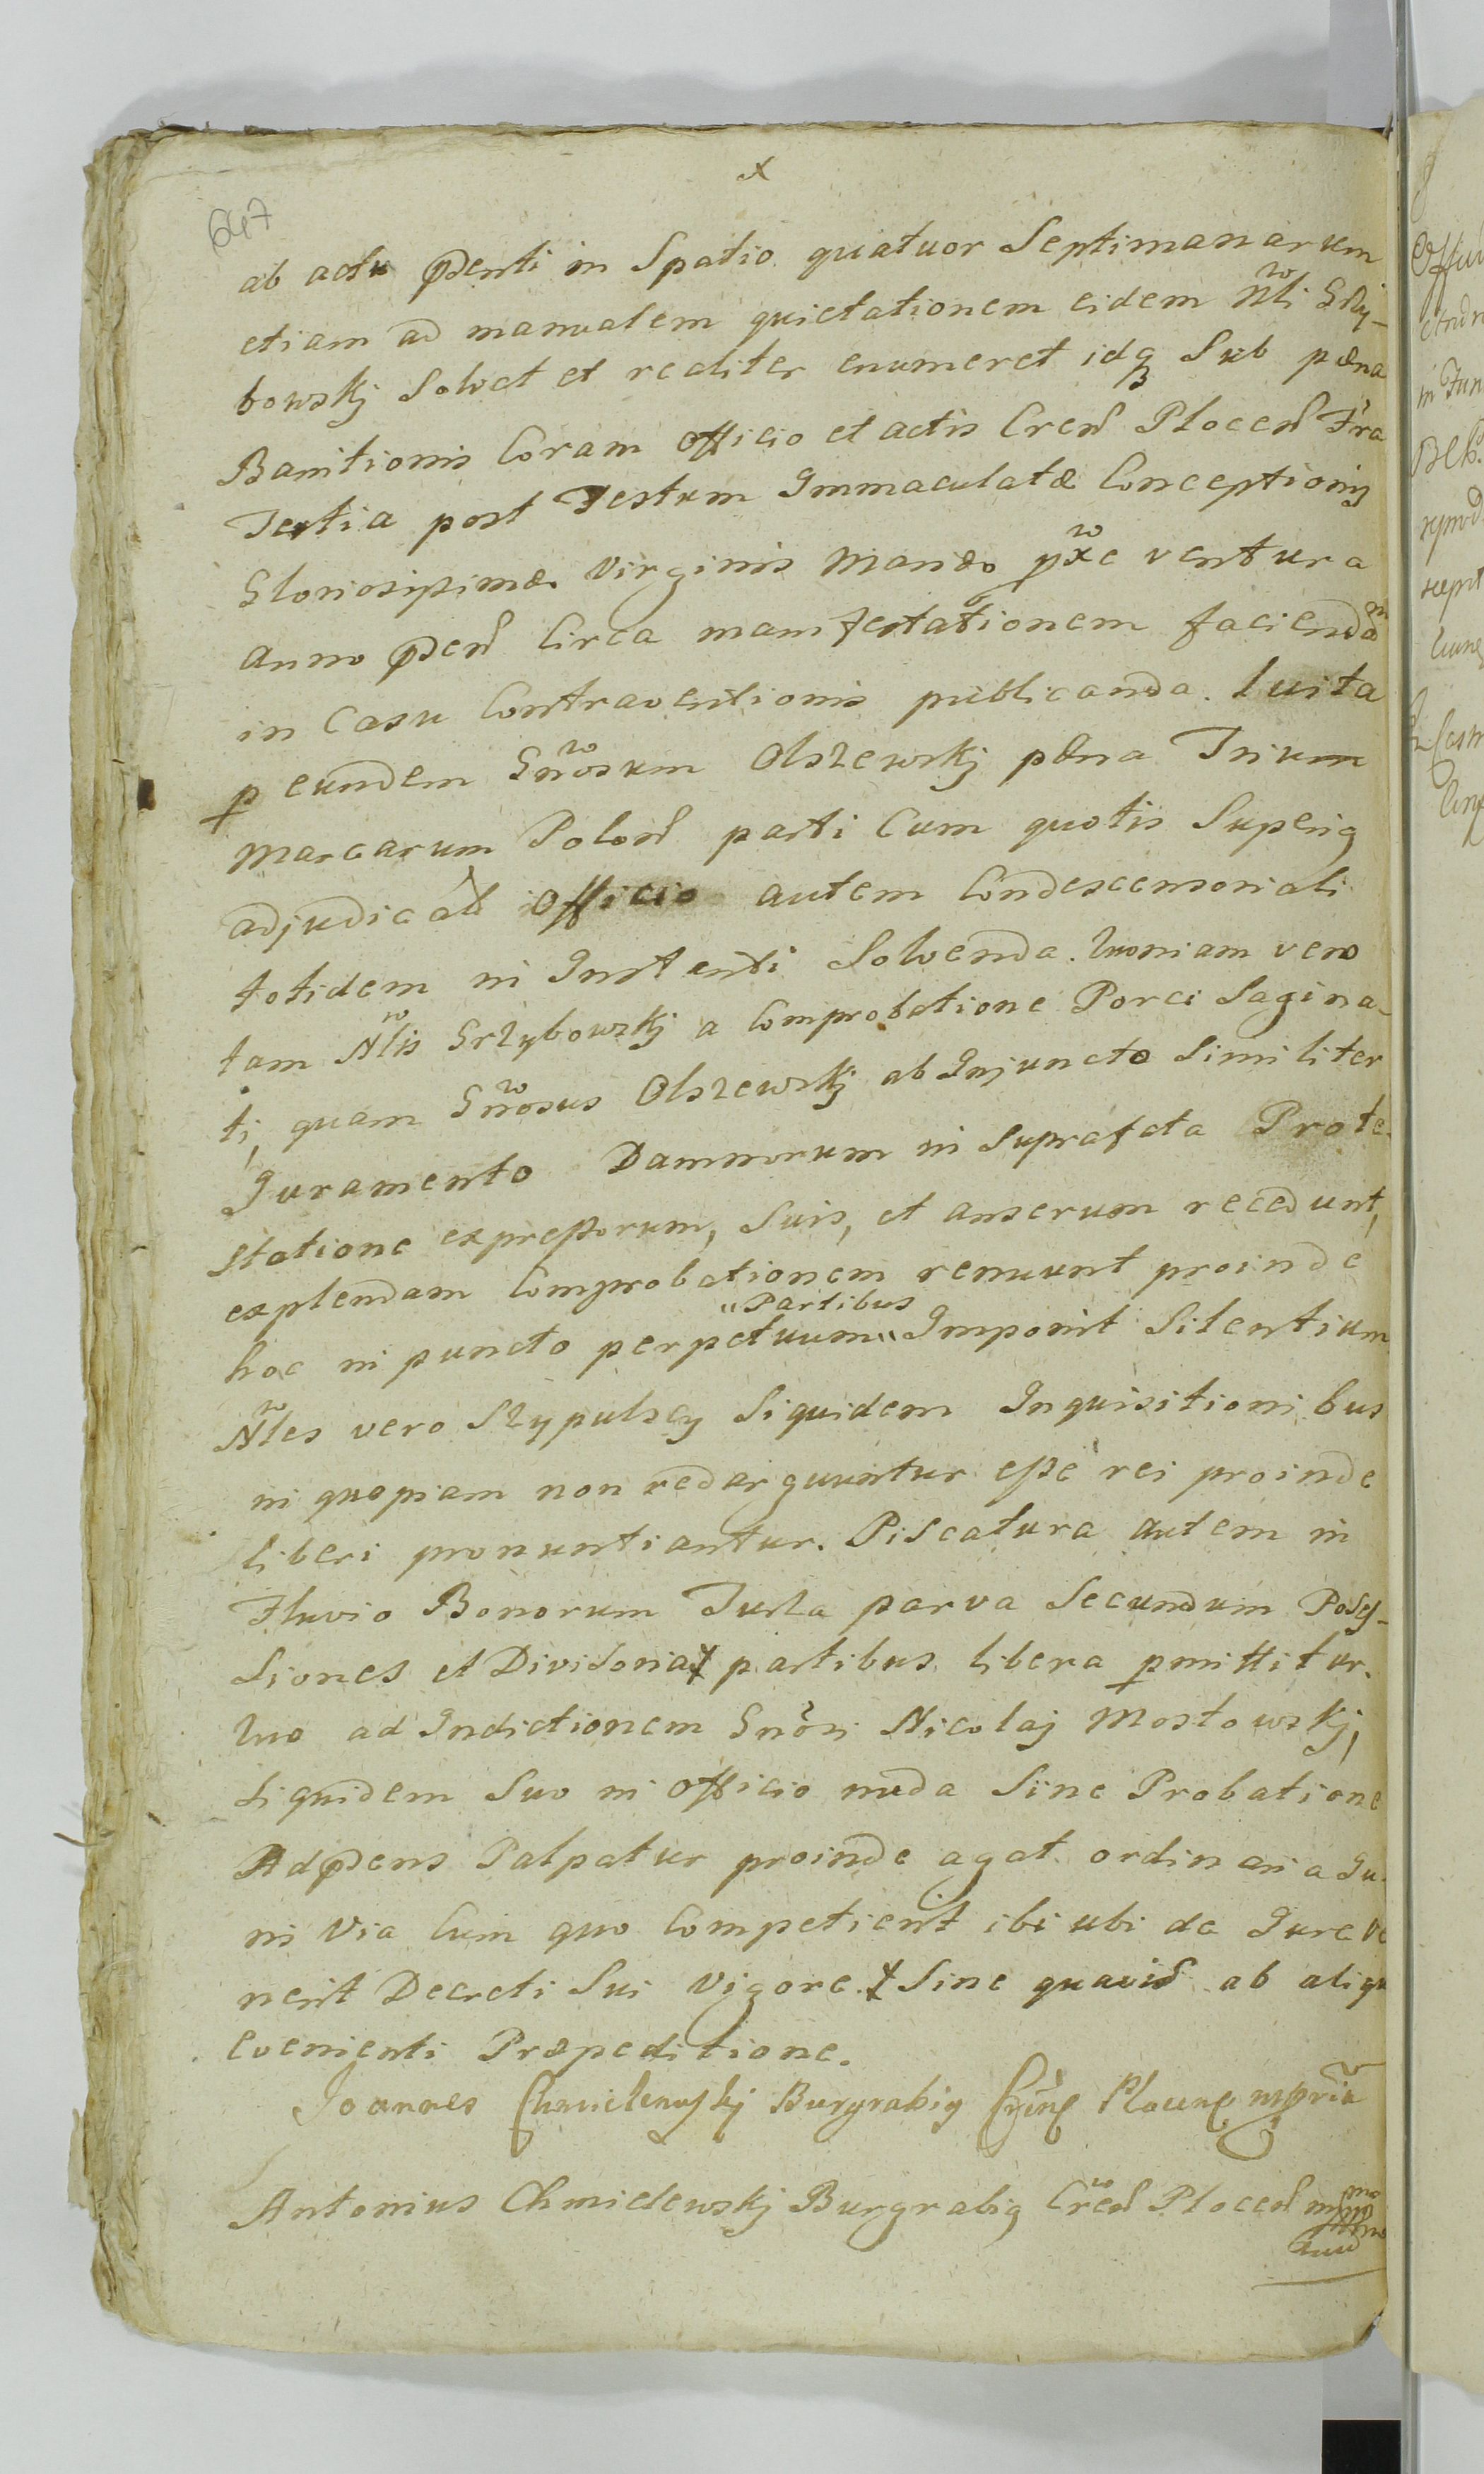 x
647
ab actu pñdenti in Spatio quatuor Septimanarum
etiam ad manualem quietationem eidem Nbli Grzy-
bowskj Solvet et realiter enumeret idq Sub pæna
Banitionis Coram Officio et actis Cren̄ Plocen̄ Fra
Tertia post Festum Immaculatæ Conceptionis
Gloriosissimæ Virginis Mariæ pxe ventura
anno pñden̄ Circa manifestationem faciendam
in Casu Contraventionis publicanda. luita
p eundem Gnrosum Olszewskj pæna Trium
Marcarum Polon̄ parti Cum quotis Superiq
adjudicat̄ Officio autem Condescensoriali
totidem in Instanti Solvenda. Quoniam vero
tam Nlis Grzybowskj a Comprobatione Porci Sagina-
ti, quam Gnrosus Olszewskj ab Injuncto Similiter
Juramento Damnorum in Suprafcta Prote-
statione expressorum, Suis, et anserum recedunt,
explendam Comprobationem renuunt proinde
hoc in puncto perpetuum "Partibus" Imponit Silentium
Nles vero Szypulscy Siquidem Inquisitionibus
in quopiam non redarguuntur esse rei proinde
liberi pronuntiantur. Piscatura autem in
Fluvio Bonorum Turza parva Secundum Posses-
Siones et Divisoria partibus libera pmittitur.
Quo ad Indictionem Gnrosi Nicolaj Mostowskj,
Siquidem Suo in Officio nuda Sine Probatione
Adpñdens Palpatur proinde agat ordinaria Ju-
ris Via Cum quo Competierit ibi ubi de Jure ve
nerit Decreti Sui Vigore. Sine quavis ab aliqu
evenienti Præpeditione.
Joannes Chmielewskj Burgrabiq Plocens mppria
Antonius Chmielewskj Burgrabiq Cren̄ Plocen̄